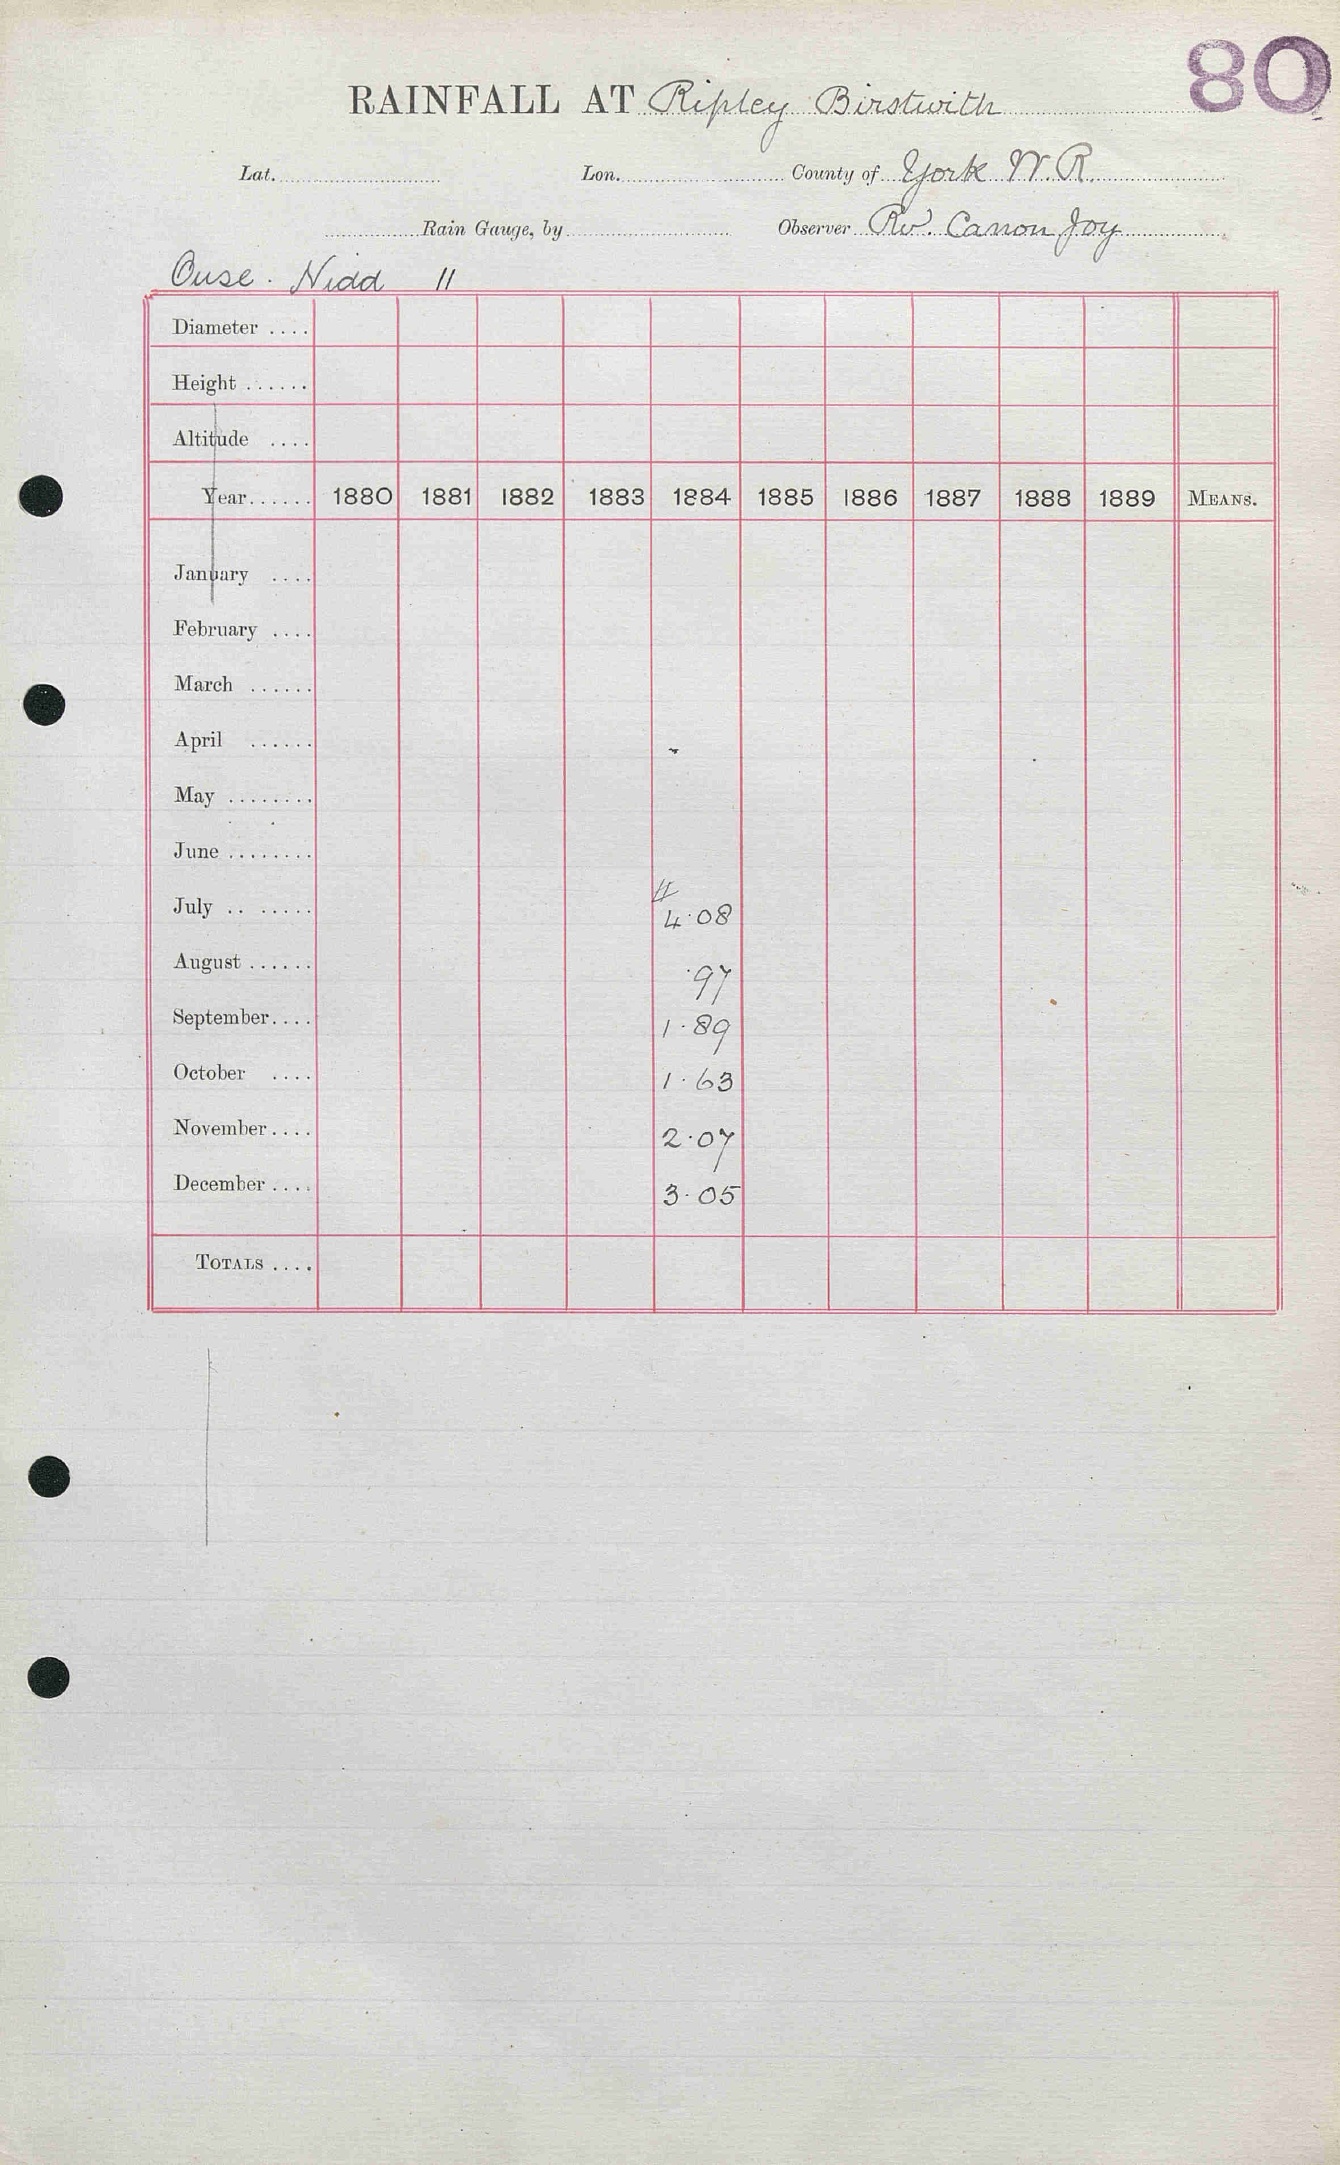 80
RAINFALL AT Ripley Birstwith
Lat. Lon. County of York W.R.
Rain Gauge, by Observer Revd. Canon Joy
Ouse. Nidd 11
Diameter ....
Height ......
Altitude ....
Year...... 1880 1881 1882 1883 1884 1885 1886 1887 1888 1889 MEANS.
January ....
February ....
March ......
April ......
May ........
June ........
July .. ...... 4.08
August ...... .97
September.... 1.89
October .... 1.63
November.... 2.07
December .... 3.05
TOTALS ....